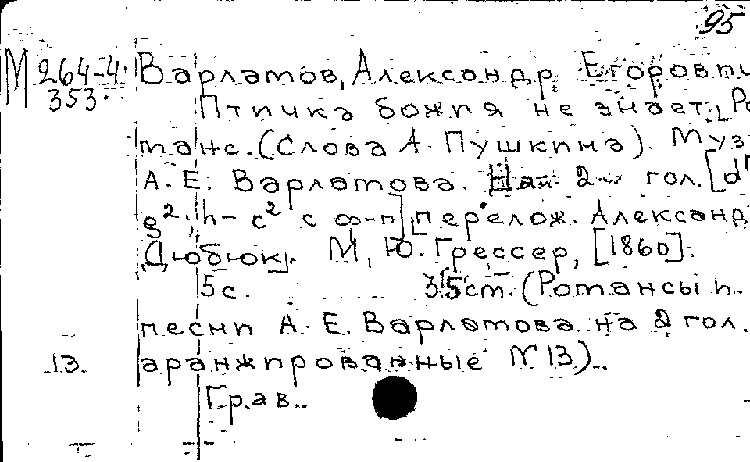 95
М 264-4 Варламов, Александр Егорович
353 Птичка божия не знает, Ро
манс. (Слова А. Пушкина). Муз
А. Е. Варламова. На 2 гол. [d
g²; h- c² с ф-п] перелож. Александ
Дюбюк. М, Ю. Грессер, [1860].
5 с. 35 см. (Романсы и
песни А. Е. Варламова на 2 гол.
13. аранжированные N 13).
Грав.